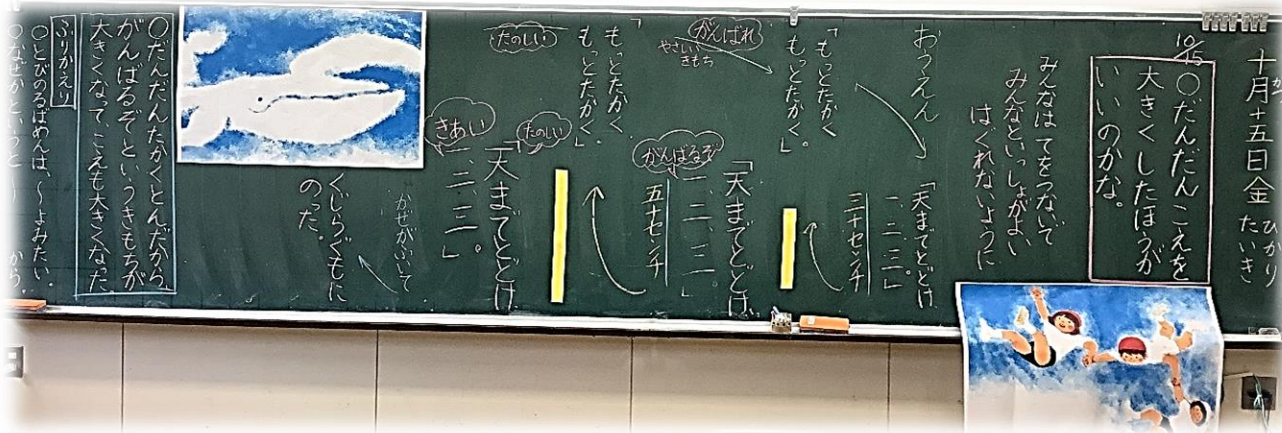 十月十五日金
ひかり
たいき
10/15
○だんだんこえを
大きくしたほうが
いいのかな。
みんなは てをつないで
みんなといっしょがよい
はぐれないように
おうえん
「天までとどけ
一、二、三。」
三十センチ
「もっとたかく
もっとたかく。」
がんばれ
やさしい
きもち
「天までとどけ、
一、二、三。」
五十センチ
がんばるぞ
「もっとたかく
もっとたかく。」
たのしい
たのしい
「天までとどけ
一、二、三。」
きあい
かぜがふいて
くじらぐもに
のった。
○だんだんたかくとんだから、
がんばるぞというきもちが
大きくなってこえも大きくなった
ふりかえり
○とびのるばめんは、～よみたい。
○なぜかというと～から。